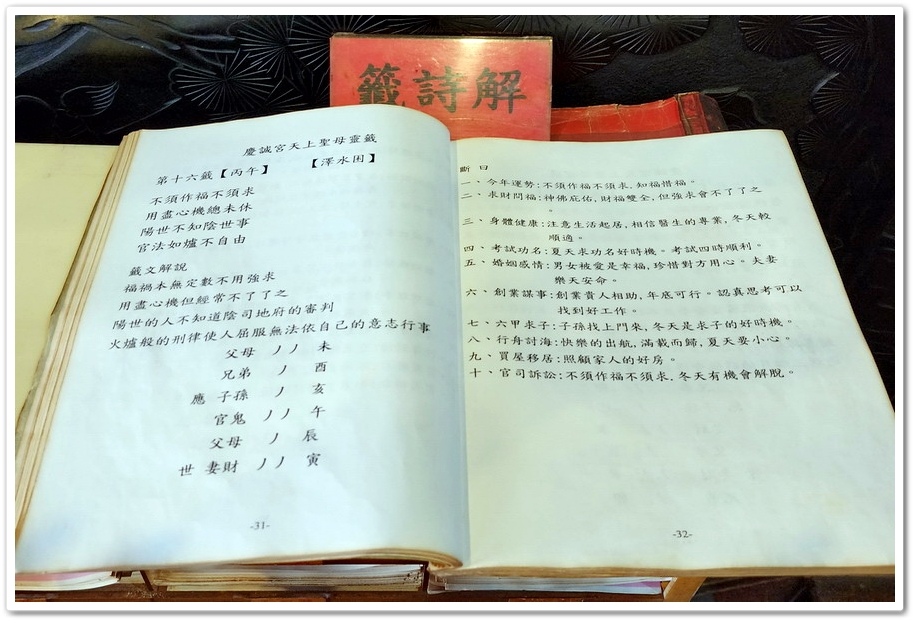 籤詩解
慶誠宮天上聖母靈籤
第十六籤【丙午】 【澤水困】
不須作福不須求
用盡心機總未休
陽世不知陰世事
官法如爐不自由
籤文解說
福禍本無定數不用強求
用盡心機但經常不了了之
陽世的人不知道陰司地府的審判
火爐般的刑律使人屈服無法依自己的意志行事
父母 ノノ 未
兄弟 ノ 酉
應 子孫 ノ 亥
官鬼 ノノ 午
父母 ノ 辰
世 妻財 ノノ 寅
-31-
斷曰
一、今年運勢:不須作福不須求,知福惜福。
二、求財問福:神佛庇佑,財福雙全,但強求會不了了之
。
三、身體健康:注意生活起居,相信醫生的專業,冬天較
順適。
四、考試功名:夏天求功名好時機。考試四時順利。
五、婚姻感情:男女被愛是幸福,珍惜對方用心。夫妻
樂天安命。
六、創業謀事:創業貴人相助,年底可行。認真思考可以
找到好工作。
七、六甲求子:子孫找上門來,冬天是求子的好時機。
八、行舟討海:快樂的出航,滿載而歸,夏天要小心。
九、買屋移居:照顧家人的好房。
十、官司訴訟:不須作福不須求,冬天有機會解脫。
-32-